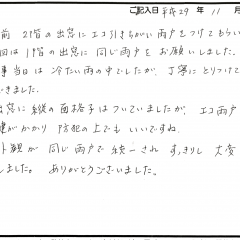 ご記入日 平成29年 11月
前 2階の出窓にエコ引きちがい雨戸をつけてもらい
回は1階の出窓に同じ雨戸をお願いしました。
事当日は冷たい雨の中でしたが、丁寧にとりつけて
できました。
出窓に縦の面格子はついていましたが、エコ雨戸
鍵がかかり防犯の上でもいいですね。
外観が同じ雨戸で統一されすっきりし大変
しました。ありがとうございました。